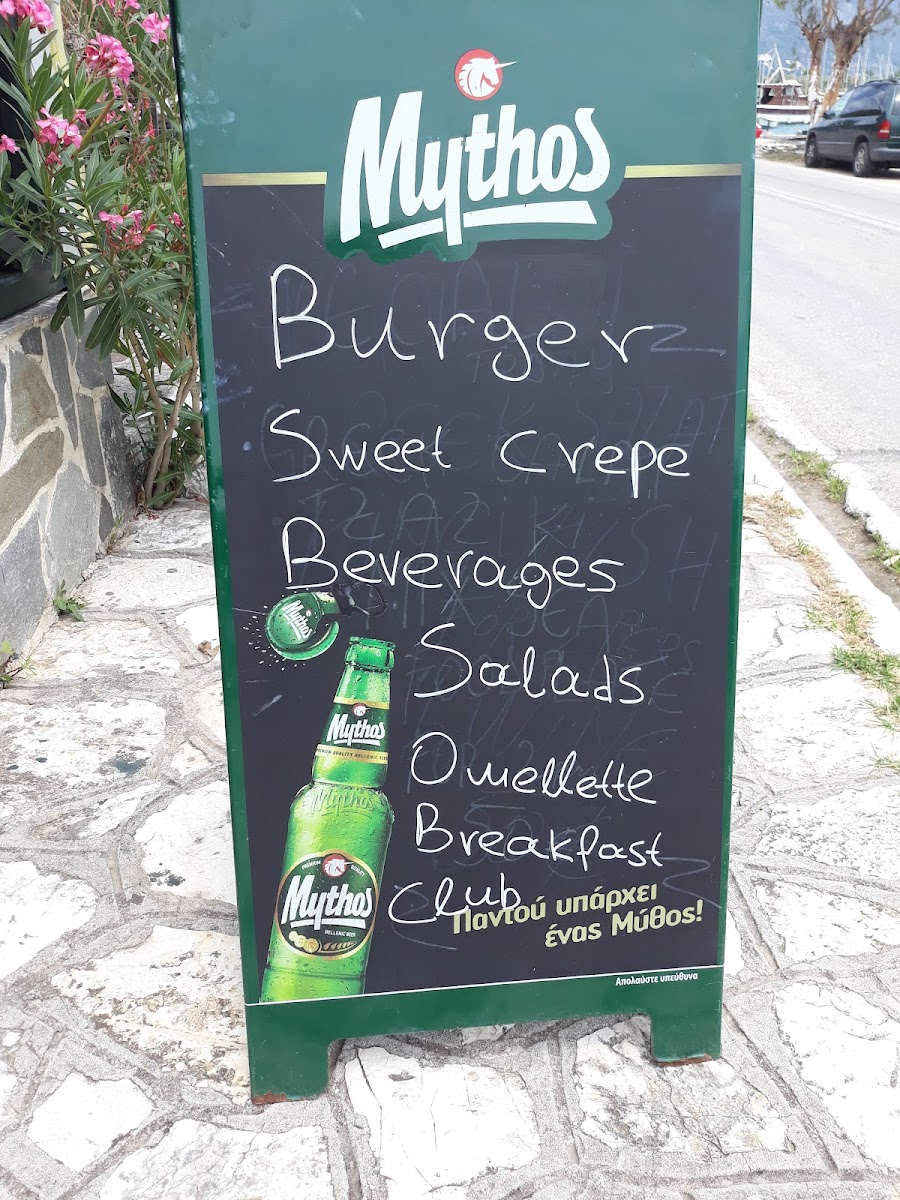 Mythos
Burger
Sweet Crepe
Beverages
Mythos
Salads
Mythos
PREMIUM QUALITY HELLENIC BEER
Mythos
Omellette
Breakfast
PREMIUM QUALITY
Mythos
HELLENIC BEER
Club
Παντού υπάρχει
ένας Μύθος!
Απολαύστε υπεύθυνα